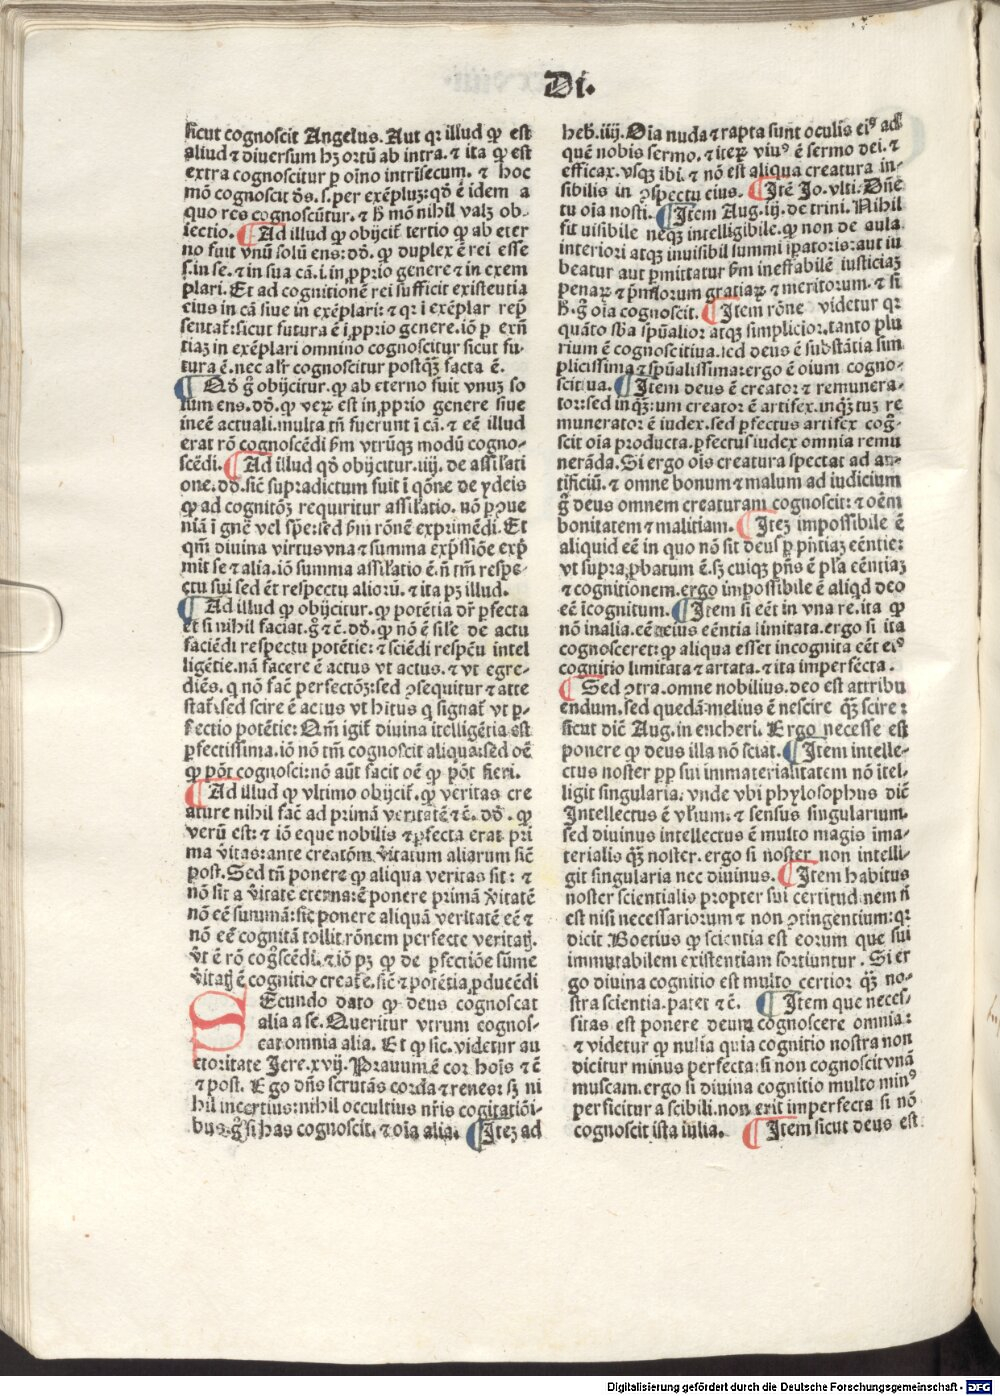 Di.
sicut cognoscit Angelus. Aut qr illud ꝙ est
aliud ⁊ diuersum hꝫ ortũ ab intra. ⁊ ita ꝙ est
extra cognoscitur ꝑ oĩno intrĩsecum. ⁊ hoc
mõ cognoscit dẽs. s. per exẽpluꝫ: qđ ẽ idem a
quo res cognoscũtur. ⁊ ħ mõ nihil valꝫ ob-
iectio. ¶ Ad illud ꝙ obijcit̃ tertio ꝙ ab eter
no fuit vnũ solũ ens: dđ. ꝙ duplex ẽ rei esse
s. in se. ⁊ in sua cã. i. in ꝓprio genere ⁊ in exem
plari. Et ad cognitionẽ rei sufficit existentia
eius in cã siue in exẽplari: ⁊ qr ĩ exẽplar rep̃
sentat̃: sicut futura ẽ ĩ ꝓprio genere. iõ ꝑ exñ
tiaꝫ in exẽplari omnino cognoscitur sicut fu-
tura ẽ. nec alr̃ cognoscitur postq̃ꝫ facta ẽ.
¶ Qđ g̃ obijcitur. ꝙ ab eterno fuit vnuꝫ so
lum ens. dđ. ꝙ veꝝ est in ꝓprio genere siue
in eẽ actuali. multa tñ fuerunt ĩ cã. ⁊ eẽ illud
erat rõ cognoscẽdi ẜm vtrũqꝫ modũ cogno-
scẽdi. ¶ Ad illud qđ obijcitur. iiij. de assĩlati
one. dđ. sic̃ supradictum fuit ĩ q̃one de ydeis
ꝙ ad cognitõꝫ requiritur assĩlatio. nõ ꝑ ꝯue
niã ĩ gñe vel spẽ: sed ẜm rõnẽ exprimẽdi. Et
qm̃ diuina virtus vna ⁊ summa exp̃ssiõe exp̃
mit se ⁊ alia. iõ summa assĩlatio ẽ. ñ tm̃ respe-
ctu sui sed ẽt respectu aliorũ. ⁊ ita pꝫ illud.
¶ Ad illud ꝙ obijcitur. ꝙ potẽtia dr̃ ꝑfecta
et si nihil faciat. g̃ ⁊ c̃. dđ. ꝙ nõ ẽ sĩle de actu
faciẽdi respectu potẽtie: ⁊ sciẽdi respcũ intel
ligẽtie. nã facere ẽ actus vt actus. ⁊ vt egre-
diẽs. q nõ fac̃ perfectõꝫ: sed ꝯsequitur ⁊ atte
stat̃: sed scire ẽ actus vt hitus q signat̃ vt ꝑ-
fectio potẽtie: Qm̃ igit̃ diuina ĩtelligẽtia est
ꝑfectissima. iõ nõ tm̃ cognoscit aliqua: sed oẽ
ꝙ põt cognosci: nõ aũt facit oẽ ꝙ põt fieri.
¶ Ad illud ꝙ vltimo obijcit̃. ꝙ veritas cre
ature nihil fac̃ ad primã veritatẽ ⁊ c̃. dđ. ꝙ
verũ est: ⁊ iõ eque nobilis ⁊ ꝑfecta erat pri
ma ṽitas: ante creatõm ṽitatum aliarum sic̃
post. Sed tñ ponere ꝙ aliqua veritas sit: ⁊
nõ sit a ṽitate eterna: ẽ ponere primã ṽitatẽ
nõ eẽ summã: sic̃ ponere aliquã veritatẽ eẽ ⁊
nõ eẽ cognitã tollit rõnem perfecte veritatꝭ.
ṽt ẽ rõ cog̃scẽdi. ⁊ iõ pꝫ ꝙ de ꝑfectiõe sũme
ṽitatꝭ ẽ cognitio create. sic̃ ⁊ potẽtia ꝓducẽdi
SEcundo dato ꝙ deus cognoscat
alia a se. Queritur vtrum cognos-
cat omnia alia. Et ꝙ sic. videtur au
ctoritate Jere. xvij. Prauum ẽ cor hoĩs ⁊ c̃
⁊ post. Ego dñs scrutãs corda ⁊ renes: sꝫ ni
hil incertius: nihil occultius nr̃is cogitatiõi-
bus. g̃ si has cognoscit. ⁊ oĩa alia. ¶ Iteꝫ ad
heb. iiij. Oĩa nuda ⁊ aꝑta sunt oculis eiꝰ ad
quẽ nobis sermo. ⁊ iteꝝ viuꝰ ẽ sermo dei. ⁊
efficax. vsqꝫ ibi. ⁊ nõ est aliqua creatura in-
uisibilis in ꝯspectu eius. ¶ Itẽ Jo. vlti. Dñe
tu oĩa nosti. ¶ Item Aug. iij. de trini. Nihil
fit uisibile neqꝫ intelligibile. ꝙ non de aula
interiori atqꝫ inuisibil summi ĩꝑatoris: aut iu
beatur aut ꝑmittatur ẜm ineffabilẽ iusticiaꝫ
penaꝝ ⁊ p̃miorum gratiaꝝ ⁊ meritorum. ⁊ si
ħ. g̃ oĩa cognoscit. ¶ Item rõne videtur qr
quãto sb̃a spũalior atqꝫ simplicior. tanto plu
rium ẽ cognoscitiua. sed deus ẽ substãtia sim
plicissima ⁊ spũalissima: ergo ẽ oium cogno-
scitiua. ¶ Item deus ẽ creator ⁊ remunera-
tor: sed in q̃ꝫtum creator ẽ artifex. inq̃ꝫtuꝫ re
munerator ẽ iudex. sed ꝑfectus artifex cog̃-
scit oĩa producta. ꝑfectus iudex omnia remu
nerãda. Si ergo oĩs creatura spectat ad ar-
tificiũ. ⁊ omne bonum ⁊ malum ad iudicium
g̃ deus omnem creaturam cognoscit: ⁊ oẽm
bonitatem ⁊ malitiam. ¶ Iteꝫ impossibile ẽ
aliquid eẽ in quo nõ sit deus ꝑ p̃ñtiaꝫ eẽntie:
vt supra ꝓbatum ẽ. sꝫ cuiqꝫ p̃ñs ẽ ꝑ suã eẽntiaꝫ
⁊ cognitionem. ergo impossibile ẽ aliqđ deo
eẽ ĩcognitum. ¶ Item si eẽt in vna re. ita ꝙ
nõ in alia. eẽt eius eẽntia limitata. ergo si ita
cognosceret: ꝙ aliqua esset incognita eẽt eiꝰ
cognitio limitata ⁊ artata. ⁊ ita imperfecta.
¶ Sed ꝯtra. omne nobilius. deo est attribu
endum. sed quedã melius ẽ nescire q̃ꝫ scire:
sicut dic̃ Aug. in encheri. Ergo necesse est
ponere ꝙ deus illa nõ sciat. ¶ Item intelle-
ctus noster ꝓp̃ sui immaterialitatem nõ ĩtel-
ligit singularia. vnde vbi phylosophus dic̃
Intellectus ẽ vl̃ium. ⁊ sensus singularium.
sed diuinus intellectus ẽ multo magis ima-
terialis q̃ꝫ noster. ergo si noster non intelli-
git singularia nec diuinus. ¶ Item habitus
noster scientialis propter sui certitudinem ñ
est nisi necessariorum ⁊ non ꝯtingentium: qr
dicit Boetius ꝙ scientia est eorum que sui
immutabilem existentiam sortiuntur. Si er
go diuina cognitio est multo certior q̃ꝫ no-
stra scientia. patet ⁊ c̃. ¶ Item que neces-
sitas est ponere deum cognoscere omnia:
⁊ videtur ꝙ nulla quia cognitio nostra non
dicitur minus perfecta: si non cognoscit vnã
muscam. ergo si diuina cognitio multo minꝰ
perficitur a scibili. non erit imperfecta si nõ
cognoscit ista iulia. ¶ Item sicut deus est
Digitalisierung gefördert durch die Deutsche Forschungsgemeinschaft - DFG